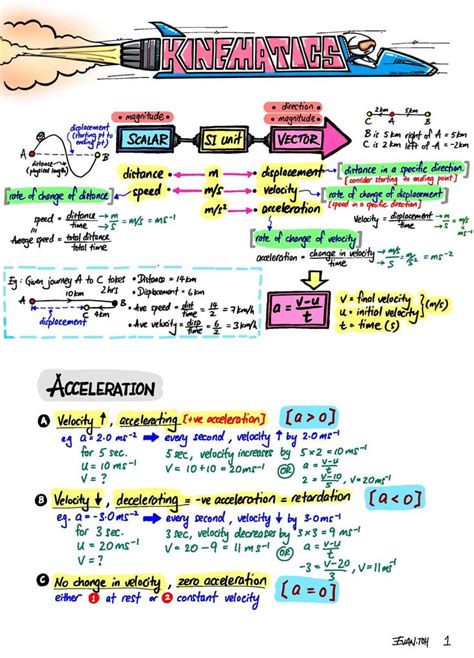 KINEMATICS
• magnitude •
• direction
• magnitude •
SCALAR
SI unit
VECTOR
displacement
(starting pt to ending pt)
A
B
distance
(physical length)
2km 5km
C A B
B is 5km right of A = 5km
C is 2km left of A = -2km
distance • m • displacement
distance in a specific direction
(consider starting to ending point)
rate of change of distance
speed • m/s • velocity
rate of change of displacement
(speed in a specific direction)
m/s² • acceleration
speed = distance/time → m/s = m/s = ms⁻¹
Average speed = total distance/total time
Velocity = displacement/time → m/s = m/s = ms⁻¹
rate of change of velocity
acceleration = change in velocity/time → m/s/s = m/s² = ms⁻²
Eg: Given journey A to C takes 2hrs
10km
A B
C 4km
displacement
• Distance = 14km
• Displacement = 6km
• Ave speed = dist/time = 14/2 = 7km/h
• Ave velocity = disp/time = 6/2 = 3km/h
a = v-u/t
V = final velocity
u = initial velocity
} (m/s)
t = time (s)
ACCELERATION
A Velocity ↑, accelerating [+ve acceleration] [a>0]
eg a = 2.0 ms⁻² → every second, velocity ↑ by 2.0 ms⁻¹
for 5 sec. 5 sec, velocity increases by 5×2 = 10 ms⁻¹
u = 10 ms⁻¹ V = 10+10 = 20ms⁻¹ OR a = v-u/t
V = ? 2 = v-10/5, V = 20ms⁻¹
B Velocity ↓, decelerating = -ve acceleration = retardation [a<0]
eg. a = -3.0 ms⁻² → every second, velocity ↓ by 3.0 ms⁻¹
for 3 sec. 3 sec, velocity decreases by 3×3 = 9 ms⁻¹
u = 20ms⁻¹ V = 20-9 = 11 ms⁻¹ OR a = v-u/t
V = ? -3 = v-20/3, V = 11ms⁻¹
C No change in velocity, zero acceleration [a=0]
either 1 at rest or 2 constant velocity
EVAN.TOH 1